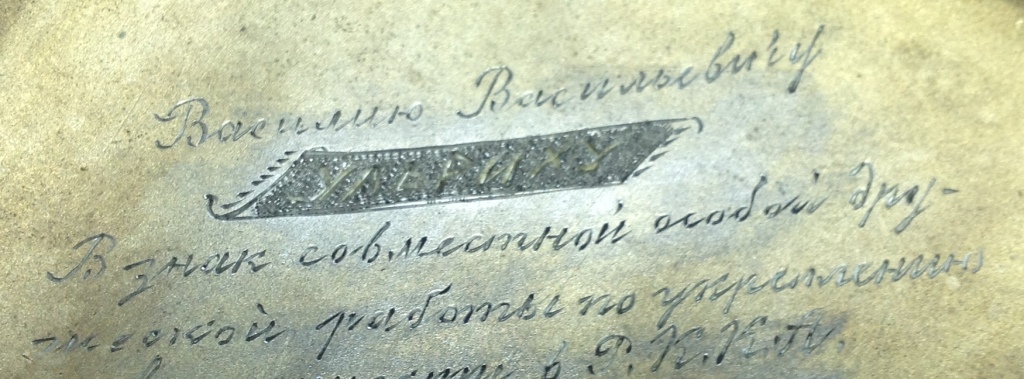 Василию Васильевичу
УЛЬРИХУ
В знак совместной особой дру-
жеской работы по укреплению
в Р.К.К.А.